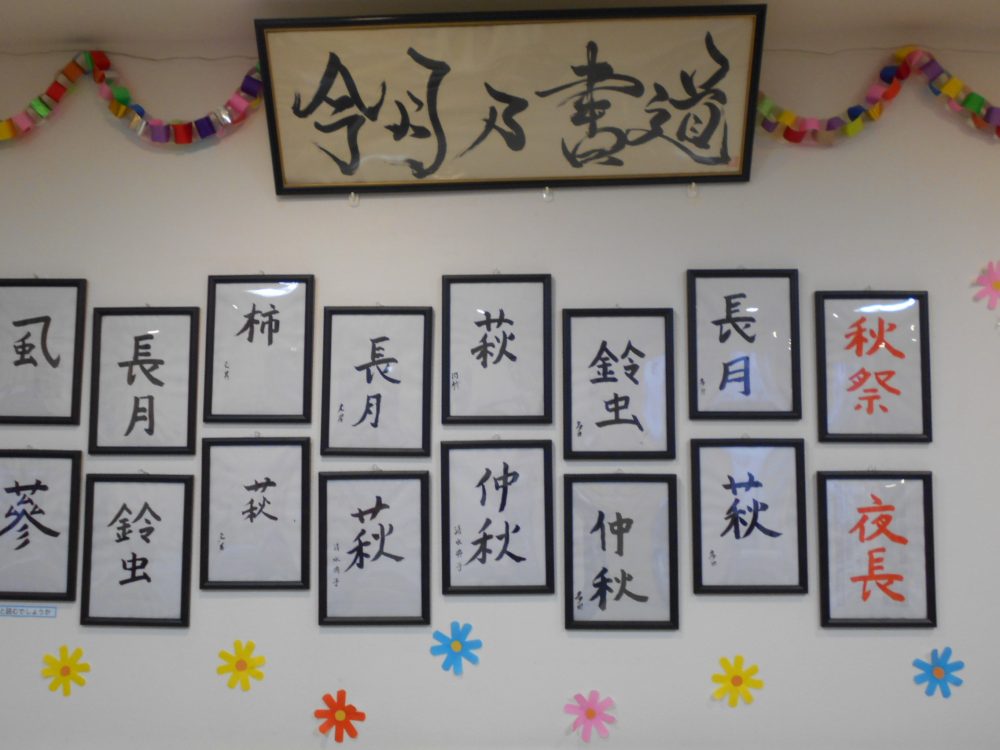 今月乃書道
虱
長月
柿
長月
萩
鈴虫
長月
秋祭
蔘
鈴虫
萩
萩
仲秋
仲秋
萩
夜長
と読むでしょうか